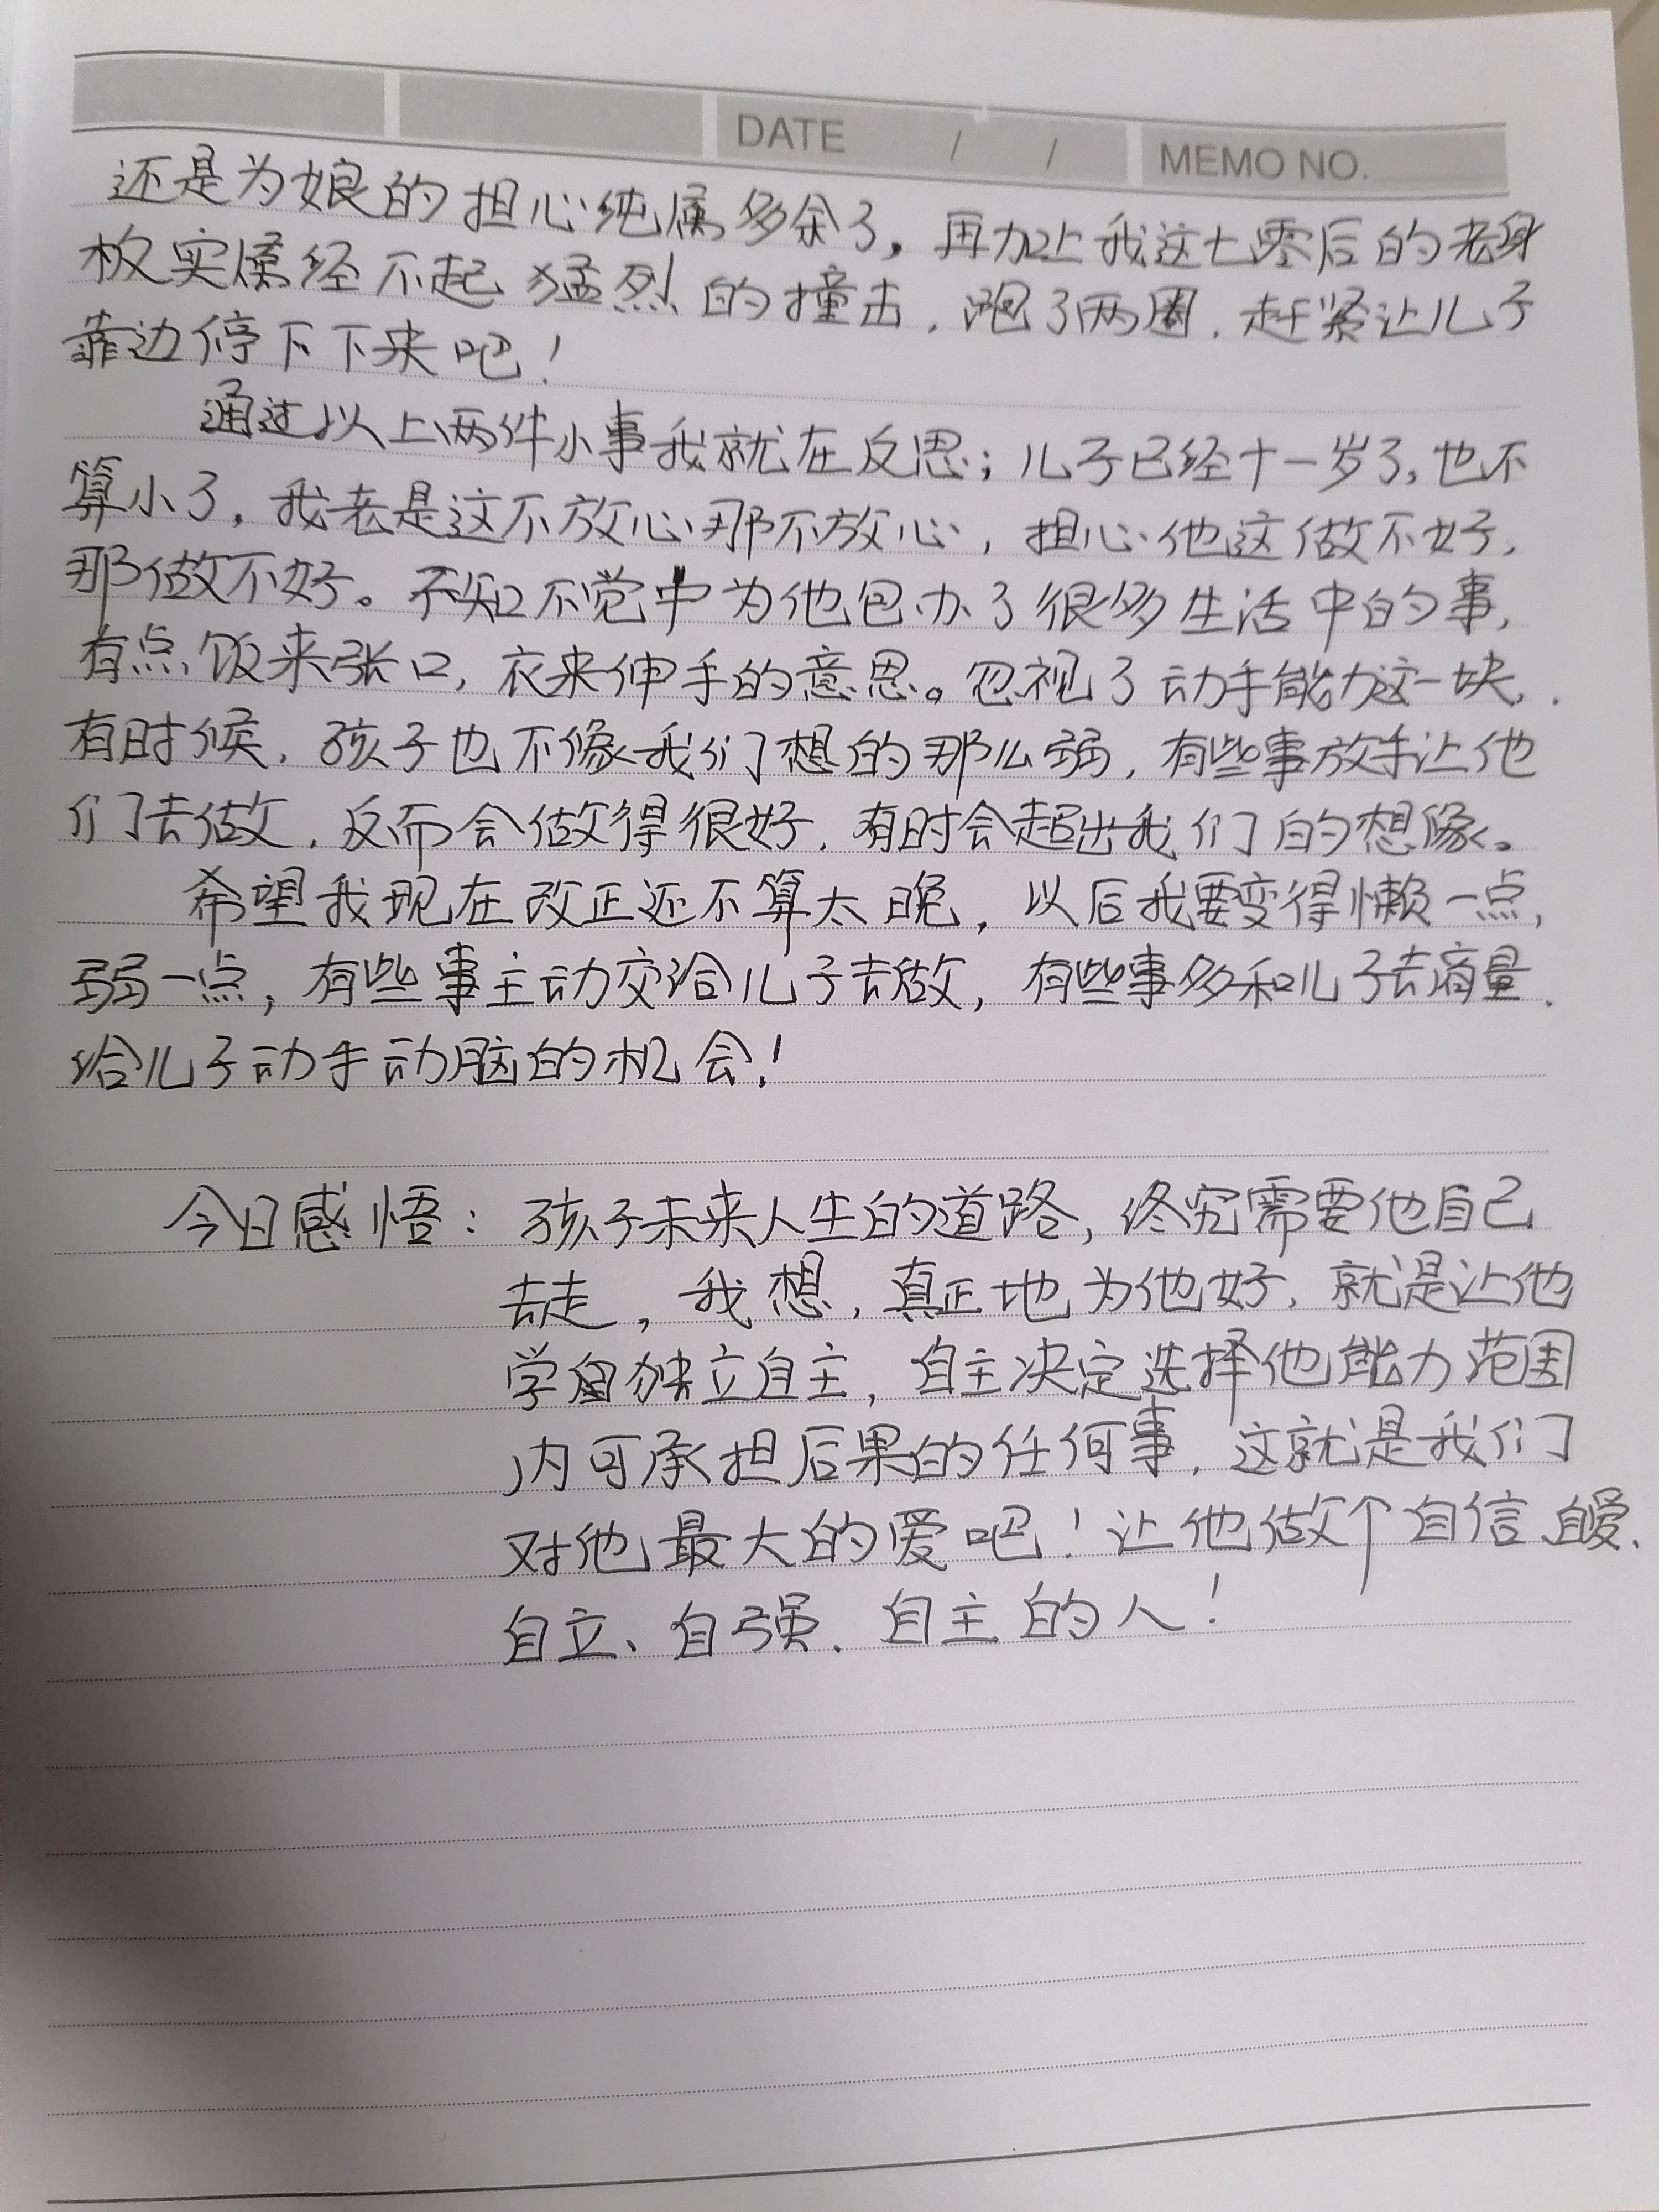 DATE / / MEMO NO.
还是为娘的担心纯属多余了，再加上我这七零后的老身
板实属经不起猛烈的撞击，跑了两圈，赶紧让儿子
靠边停下下来吧！
通过以上两件小事我就在反思；儿子已经十一岁了，也不
算小了，我老是这不放心那不放心，担心他这做不好，
那做不好。不知不觉中为他包办了很多生活中的事，
有点饭来张口，衣来伸手的意思。忽视了动手能力这一块，
有时候，孩子也不像我们想的那么弱，有些事放手让他
们去做，反而会做得很好，有时会超出我们的想像。
希望我现在改正还不算太晚，以后我要变得懒一点，
弱一点，有些事主动交给儿子去做，有些事多和儿子去商量，
给儿子动手动脑的机会！
今日感悟：孩子未来人生的道路，终究需要他自己
去走，我想，真正地为他好，就是让他
学独立自主，自主决定选择他能力范围
内可承担后果的任何事，这就是我们
对他最大的爱吧！让他做个自信、自爱、
自立、自强、自主的人！